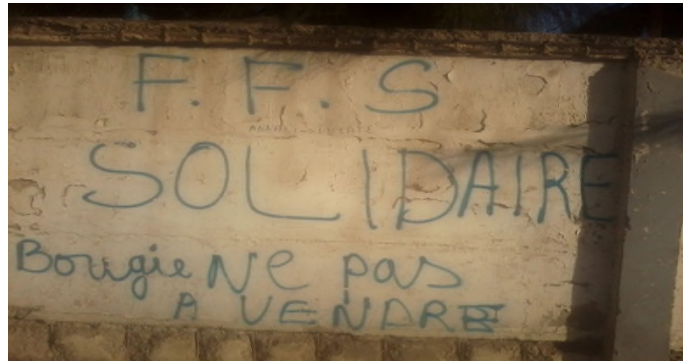 F.F.S
SOLIDAIRE
Bougie Ne pas
A VENDRE